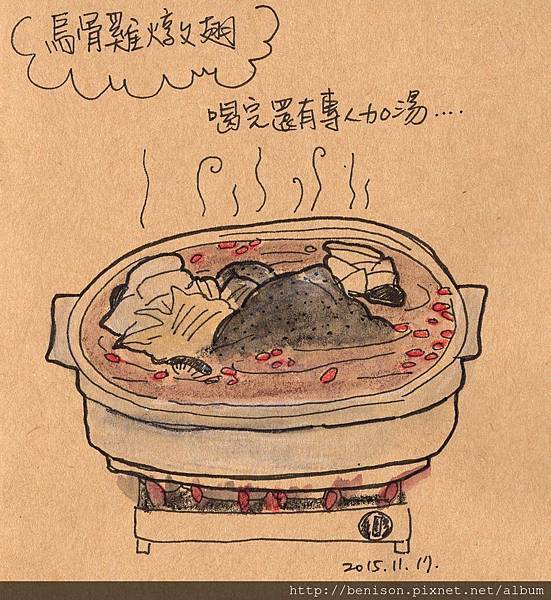 烏骨雞燉翅
喝完還有專人加湯....
2015.11.17.
http://benison.pixnet.net/album